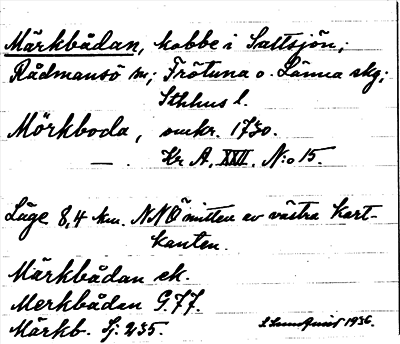 Märkbådan, kobbe i Saltsjön;
Rådmansö sn; Frötuna o. Länna skg;
Sthlms l.
Mörkboda, omkr. 1730.
— . Kr A, XXII. N:o 15.
Läge 8,4 km. NNÖ mitten av västra kart-
kanten.
Märkbådan ek.
Merkbådan G.77.
Märkb. Sj: 235. 1936.